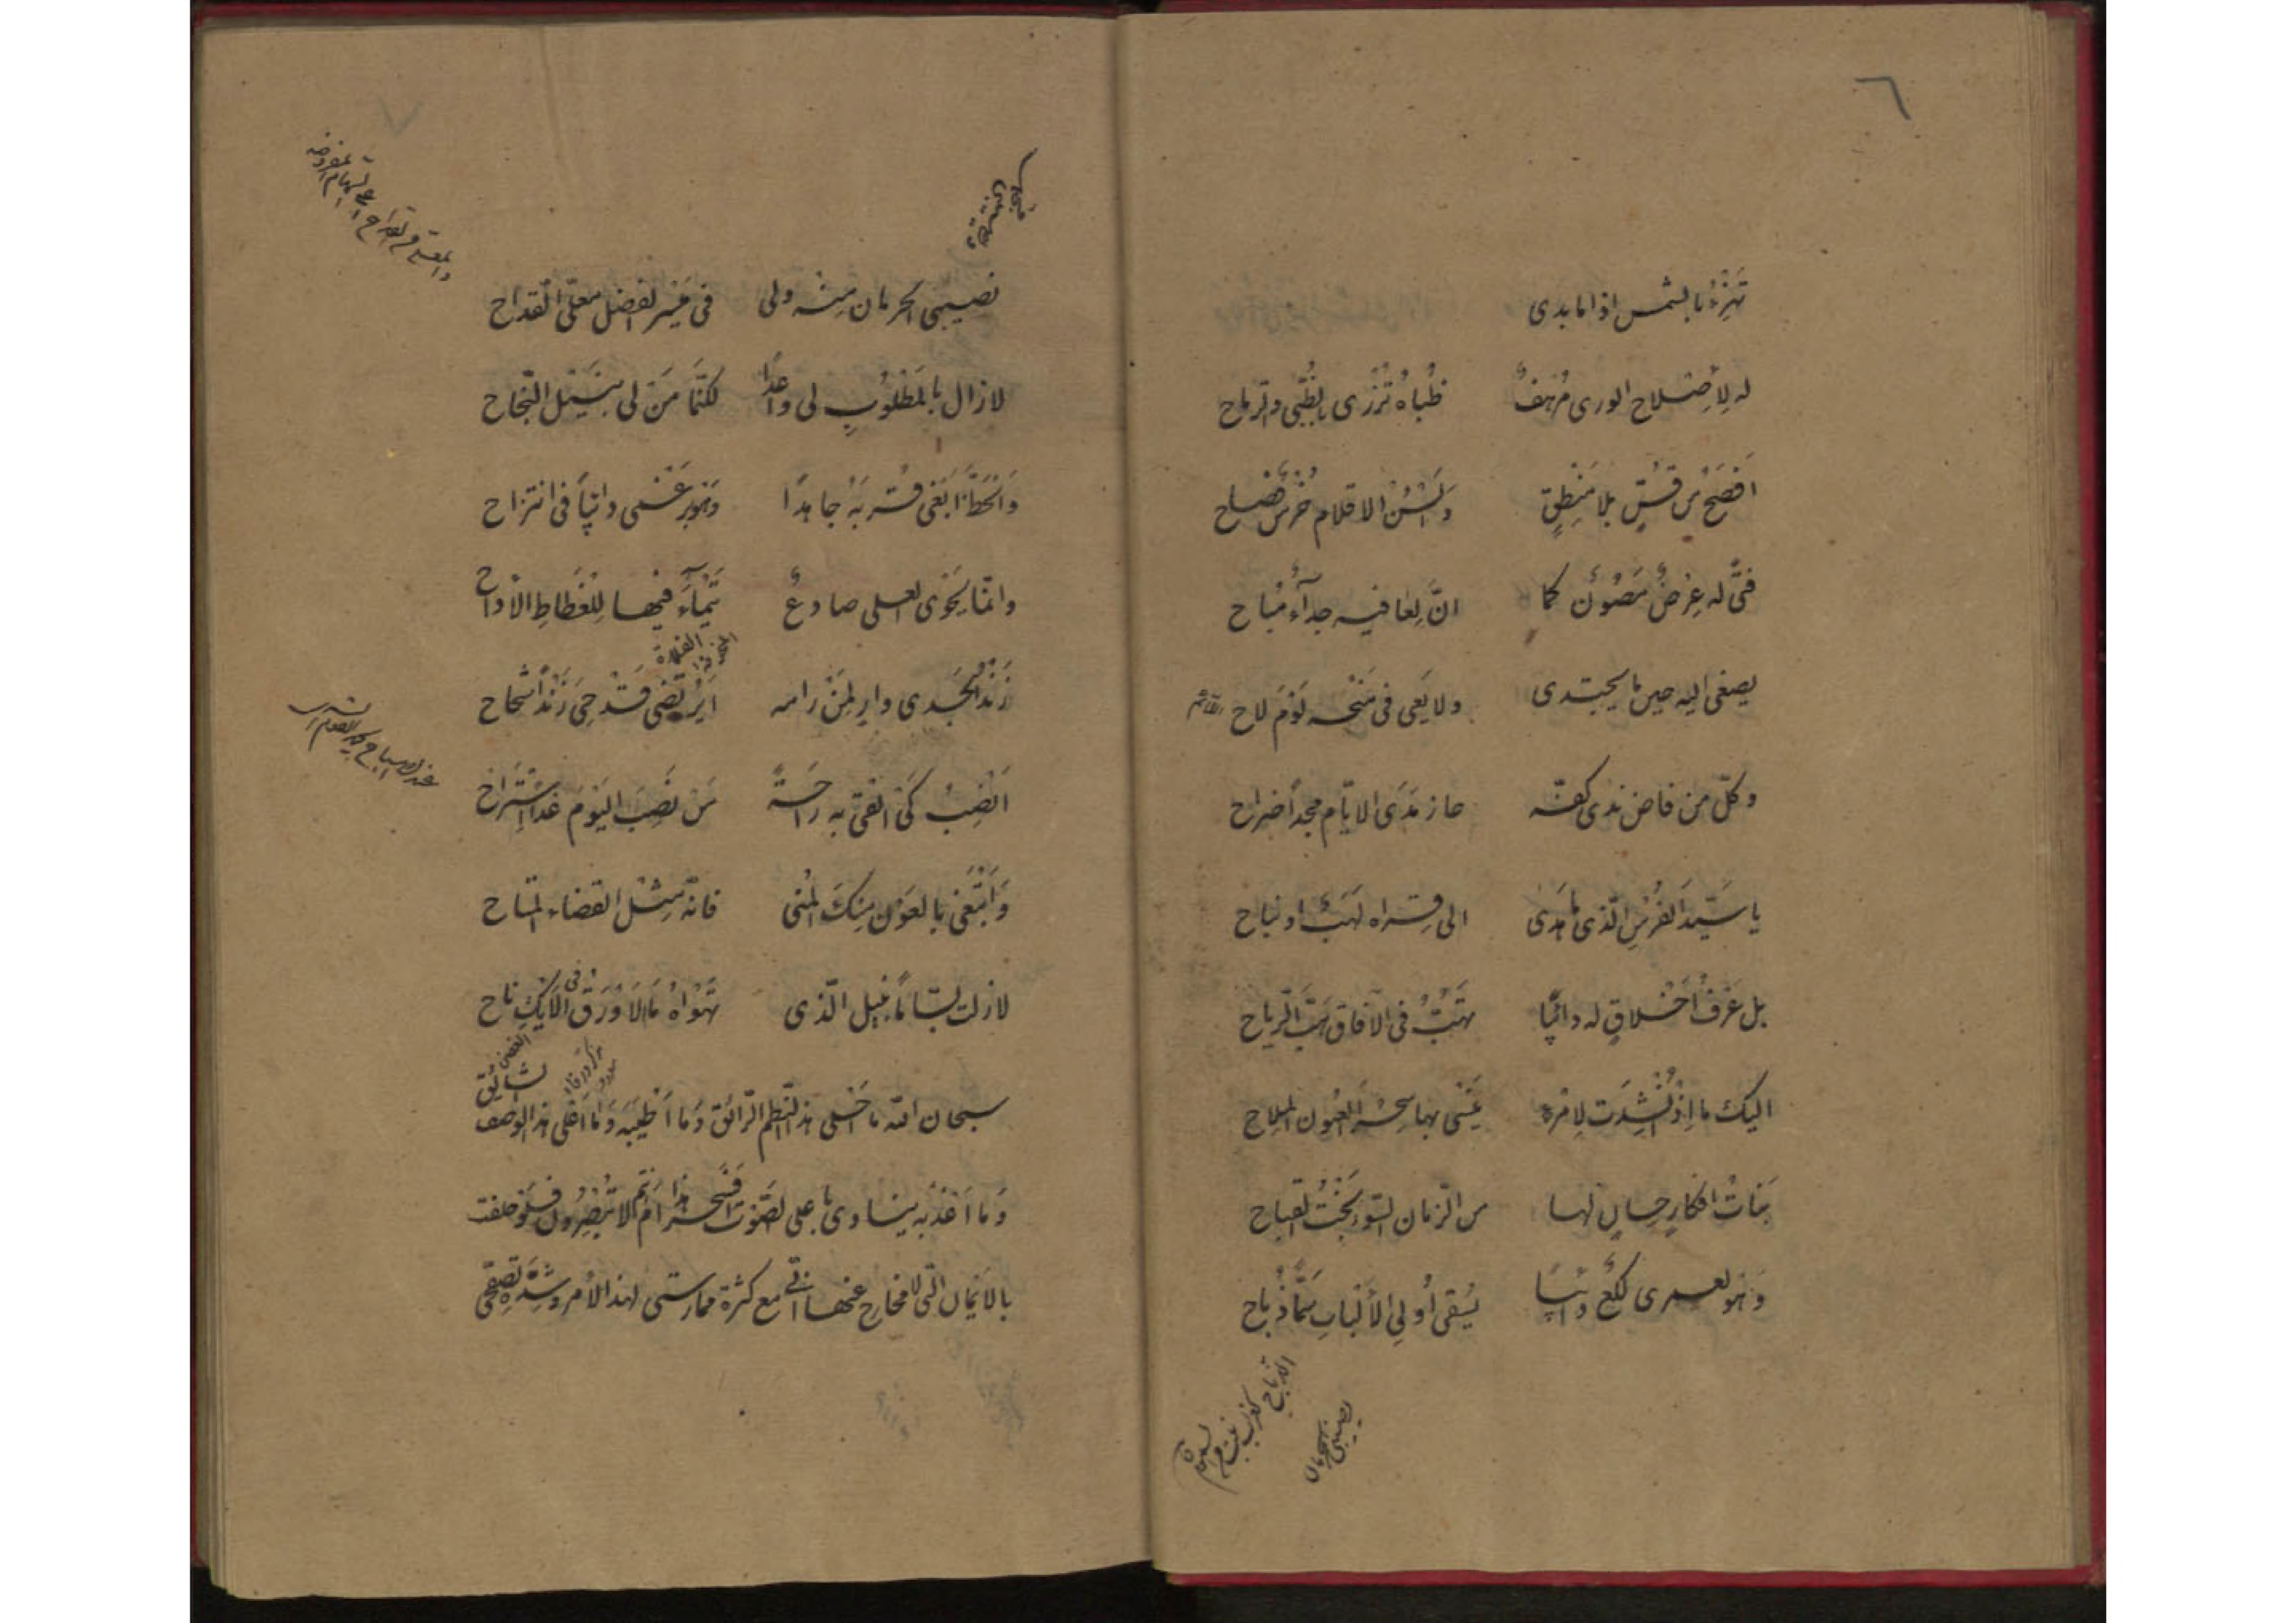 ٦
تَهْزَءُ بالشمس اذا ما بدى
له لِاِصْلاح الورى مُرْهَفٌ ظُباهُ تُزْرى بالظُّبى والرماح
اَفصَحُ من قُسٍّ بلا مَنْطِقٍ وَاَلْسُنُ الاقلام خُرْسٌ فِصاح
فتًى له عِرْضٌ مَصُوْنٌ كما انَّ لِعافيه جداءٌ مُباح
يصغى اليه حين ما يجتدى ولا يَعى فى مَنْحه لَوْمَ لاح
وكلّ من فاض ندى كفّه حاز مَدَى الايّام مجداً صراح
يا سَيّدَ الفُرْسِ الّذى ما هَدى الى قِراه لَهَبٌ او نباح
بل عَرْفُ اَخْلاقٍ له دائمًا تَهُبُّ فى الآفاق هَبَّ الرّياح
اليك ما اِذْ اُنْشِدَت لِامْرءٍ غَنّى بها سِحْرُ العُيُون الملاح
بَناتُ افكارٍ حِسانٍ لها من الزمان السّوء بَخْتُ القباح
وَهْوَ لعمرى لُكَعٌ دائبًا يُسْقى اُولِى الاَلْبابِ سَمّاً ذُباح
نصيبى الحرمان
٧
نصيبى الحرمان مِنْه ولى فى مَيْسِر الفضل مُعَلّى القِداح
لازال بالمَطْلُوبِ لى واعدًا لكنَّما مَنْ لى بِنَيْل النّجاح
وَالحَظَّ اَبْغى قُرْبَهُ جاهدًا وَهْوَ عَنّى دائباً فى انتزاح
وانّما يَحْوى العلى صادعٌ تَيْماءَ فيها لِلْغَطاطِ الاُداح
الفلاة
زَنْدُ الجَدى وارٍ لِمَنْ رامه اَيُرْتَضى قَدْحِىَ زَنْداً شحاح
اَنْصِبُ كَىْ القى به راحَةً مَن نَصِبَ اليَوْمَ غَداً اِسْتَراح
وَاَبْتَغى بالعَوْنِ مِنكَ المُنى فانّه مِثْل القضاء المتاح
لازلت بسّاماً بنيل الّذى تَهْواهُ ما الاَوْرَقُ فى الاَيْكِ ناح
سبحان الله ما اَحْلى هذا النّظم الرّائق وَما اَطْيَبَه وَما اَعْلى هذا الوصف الشائق
وَما اَعْذَبَه ينادى باعلى الصّوت اَفَسِحْرٌ هذا اَم انتم لا تُبْصِرُون فلَوْ حلفت
بالاَيْمان الّتى لا مخارج عنها انّى مع كثرة ممارستى لهذا الاَمر وشِدَّةِ تصفّحى